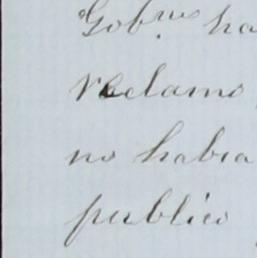 Gob.nos ha
reclamo
no habia
publico